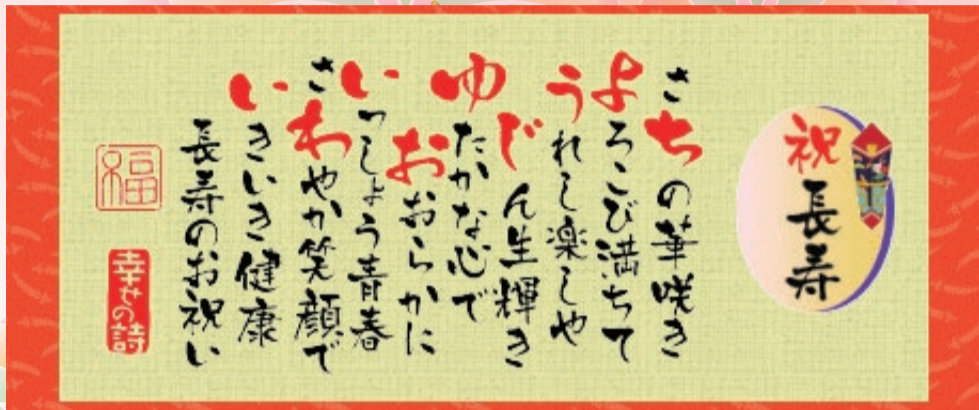 祝
長寿
さちの華咲き
よろこび満ちて
うれし楽しや
じん生輝き
ゆたかな心で
おおらかに
いつしょう青春
さわやか笑顔で
いきいき健康
長寿のお祝い
福
幸せの詩